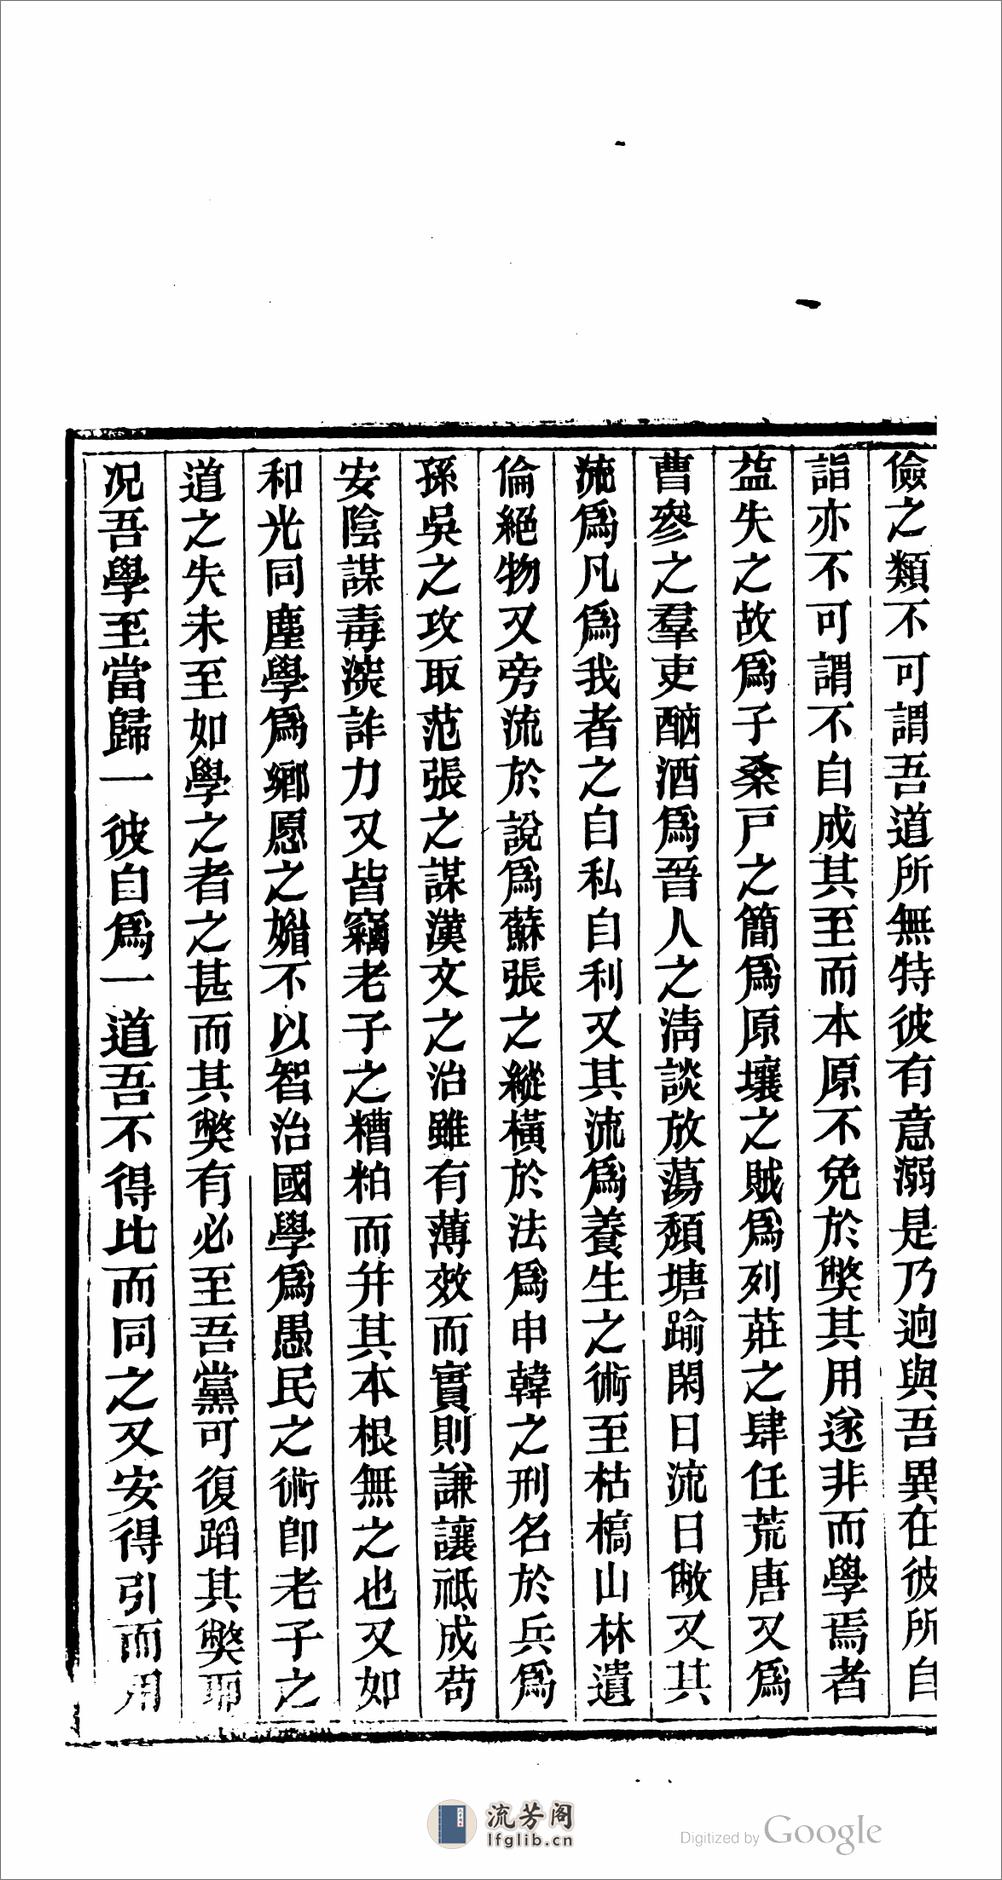 儉之類不可謂吾道所無特彼有意溺是乃迥與吾異在彼所自
詣亦不可謂不自成其至而本原不免於獘其用遂非而學焉者
益失之故爲子桑戸之簡爲原壤之賊爲列莊之肆任荒唐又爲
曹參之羣吏酗酒爲晉人之淸談放蕩頽塘踰閑日流日敝又其
流爲凡爲我者之自私自利又其流爲養生之術至枯槁山林遺
倫絕物又旁流於說爲蘇張之縱橫於法爲申韓之刑名於兵爲
孫吳之攻取范張之謀漢文之治雖有薄效而實則謙讓祗成苟
安陰謀毒深詐力又皆竊老子之糟粕而幷其本根無之也又如
和光同塵學爲鄉愿之媚不以智治國學爲愚民之術卽老子之
道之失未至如學之者之甚而其獘有必至吾黨可復蹈其獘耶
况吾學至當歸一彼自爲一道吾不得比而同之又安得引而用
流芳阁
lfglib.cn
Digitized by Google